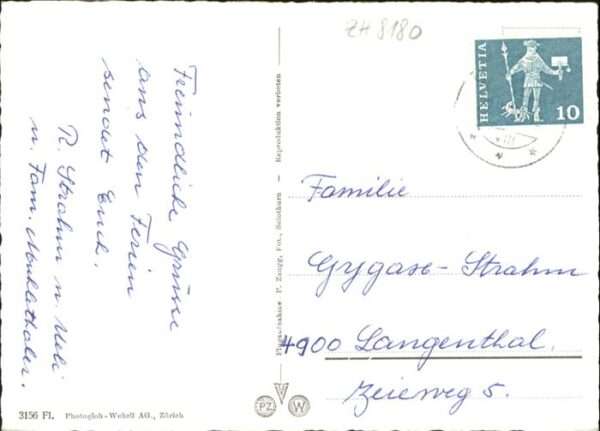 ZH 8180
HELVETIA
10
Freundliche Grüsse
aus den Ferien
sendet Euch.
R. Strahm u. Ueli
u. Fam. Mühlethaler.
Familie
Gygax-Strahm
4900 Langenthal.
5.
Flugaufnahme P. Zaugg, Fot., Solothurn - Reproduktion verboten
PZ W
3156 Fl. Photoglob-Wehrli AG., Zürich